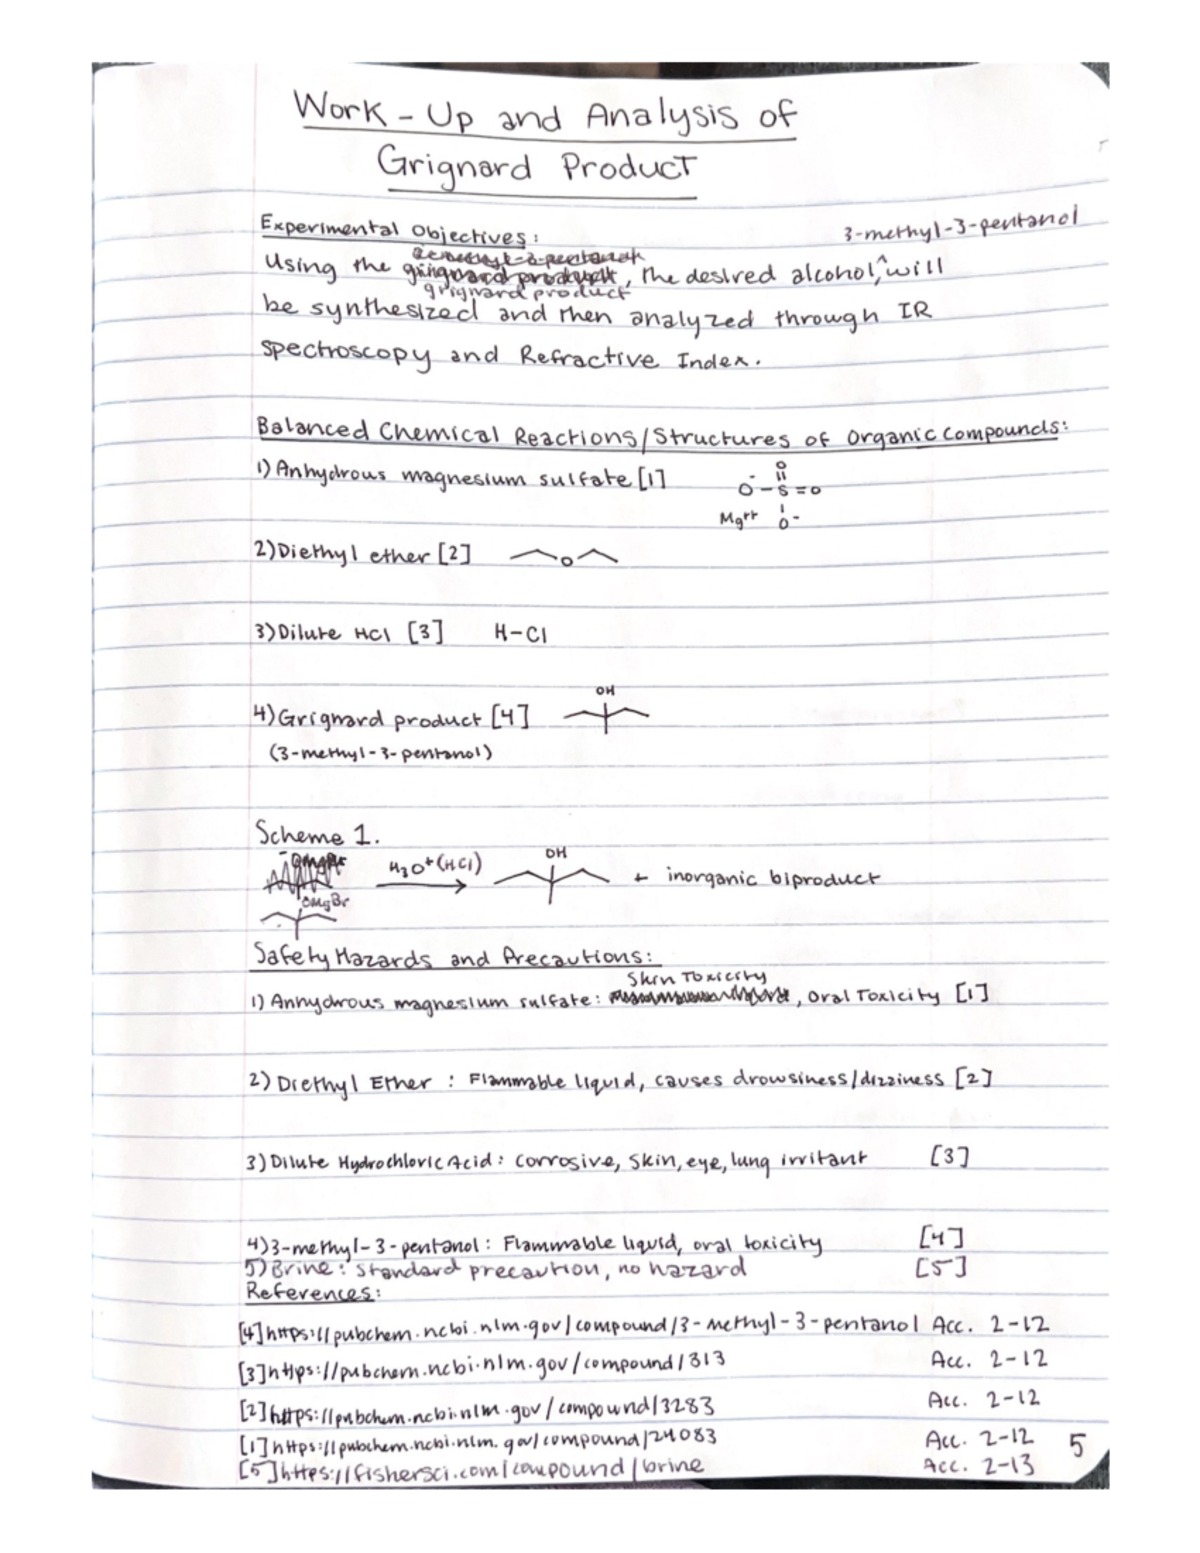 Work-Up and Analysis of
Grignard Product
Experimental Objectives:
3-methyl-3-pentanol
Using the grignard product, the desired alcohol,^ will
grignard product
be synthesized and then analyzed through IR
Spectroscopy and Refractive Index.
Balanced Chemical Reactions/Structures of Organic Compounds:
1) Anhydrous magnesium sulfate [1]
O
O⁻-S=O
Mg++ O-
2) Diethyl ether [2]
O
3) Dilute HCl [3] H-Cl
OH
4) Grignard product [4]
(3-methyl-3-pentanol)
Scheme 1.
-OMgBr
H3O+(HCl)
OH
+ inorganic biproduct
OMgBr
Safety Hazards and Precautions:
Skin Toxicity
1) Anhydrous magnesium sulfate: , Oral Toxicity [1]
2) Diethyl Ether : Flammable liquid, causes drowsiness/dizziness [2]
3) Dilute Hydrochloric Acid: Corrosive, Skin, eye, lung irritant [3]
4) 3-methyl-3-pentanol: Flammable liquid, oral toxicity [4]
5) Brine: Standard precaution, no hazard [5]
References:
[4] https://pubchem.ncbi.nlm.gov/compound/3-methyl-3-pentanol Acc. 2-12
[3] https://pubchem.ncbi.nlm.gov/compound/313 Acc. 2-12
[2] https://pubchem.ncbi.nlm.gov/compound/3283 Acc. 2-12
[1] https://pubchem.ncbi.nlm.gov/compound/24083 Acc. 2-12
[5] https://fishersci.com/compound/brine Acc. 2-13
5